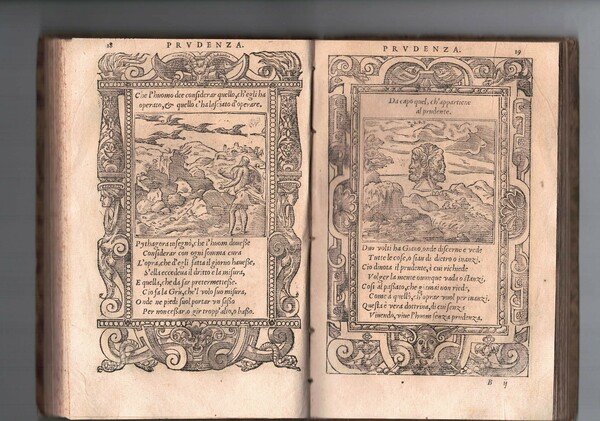 18
PRVDENZA.
Che l'huomo dee considerar quello, ch'egli ha
operato, & quello c'ha lasciato d'operare.
Pythagora insegnò, che l'huom douesse
Considerar con ogni somma cura
L'opra, che d'egli fatta il giorno hauesse,
S'ella eccedeua il dritto e la misura,
E quella, che da far pretermettesse.
Ciò fa la Gru, che'l volo suo misura,
Onde ne piedi suol portar vn sasso
Per non cessar, o gir tropp'alto, o basso.
PRVDENZA.
19
Da capo quel, ch'appartiene
al prudente.
Duo volti ha Giano, onde discerne e vede
Tutte le cose, o sian di dietro o inanzi.
Ciò dinota il prudente, à cui richiede
Volger la mente ouunque vada o stanzi.
Così al passato, che gia mai non riedi,
Come à quell', ch'oprar vuol per inanzi.
Quest'è vera dottrina, di cui senza
Viuendo, viue l'huom senza prudenza.
B ij